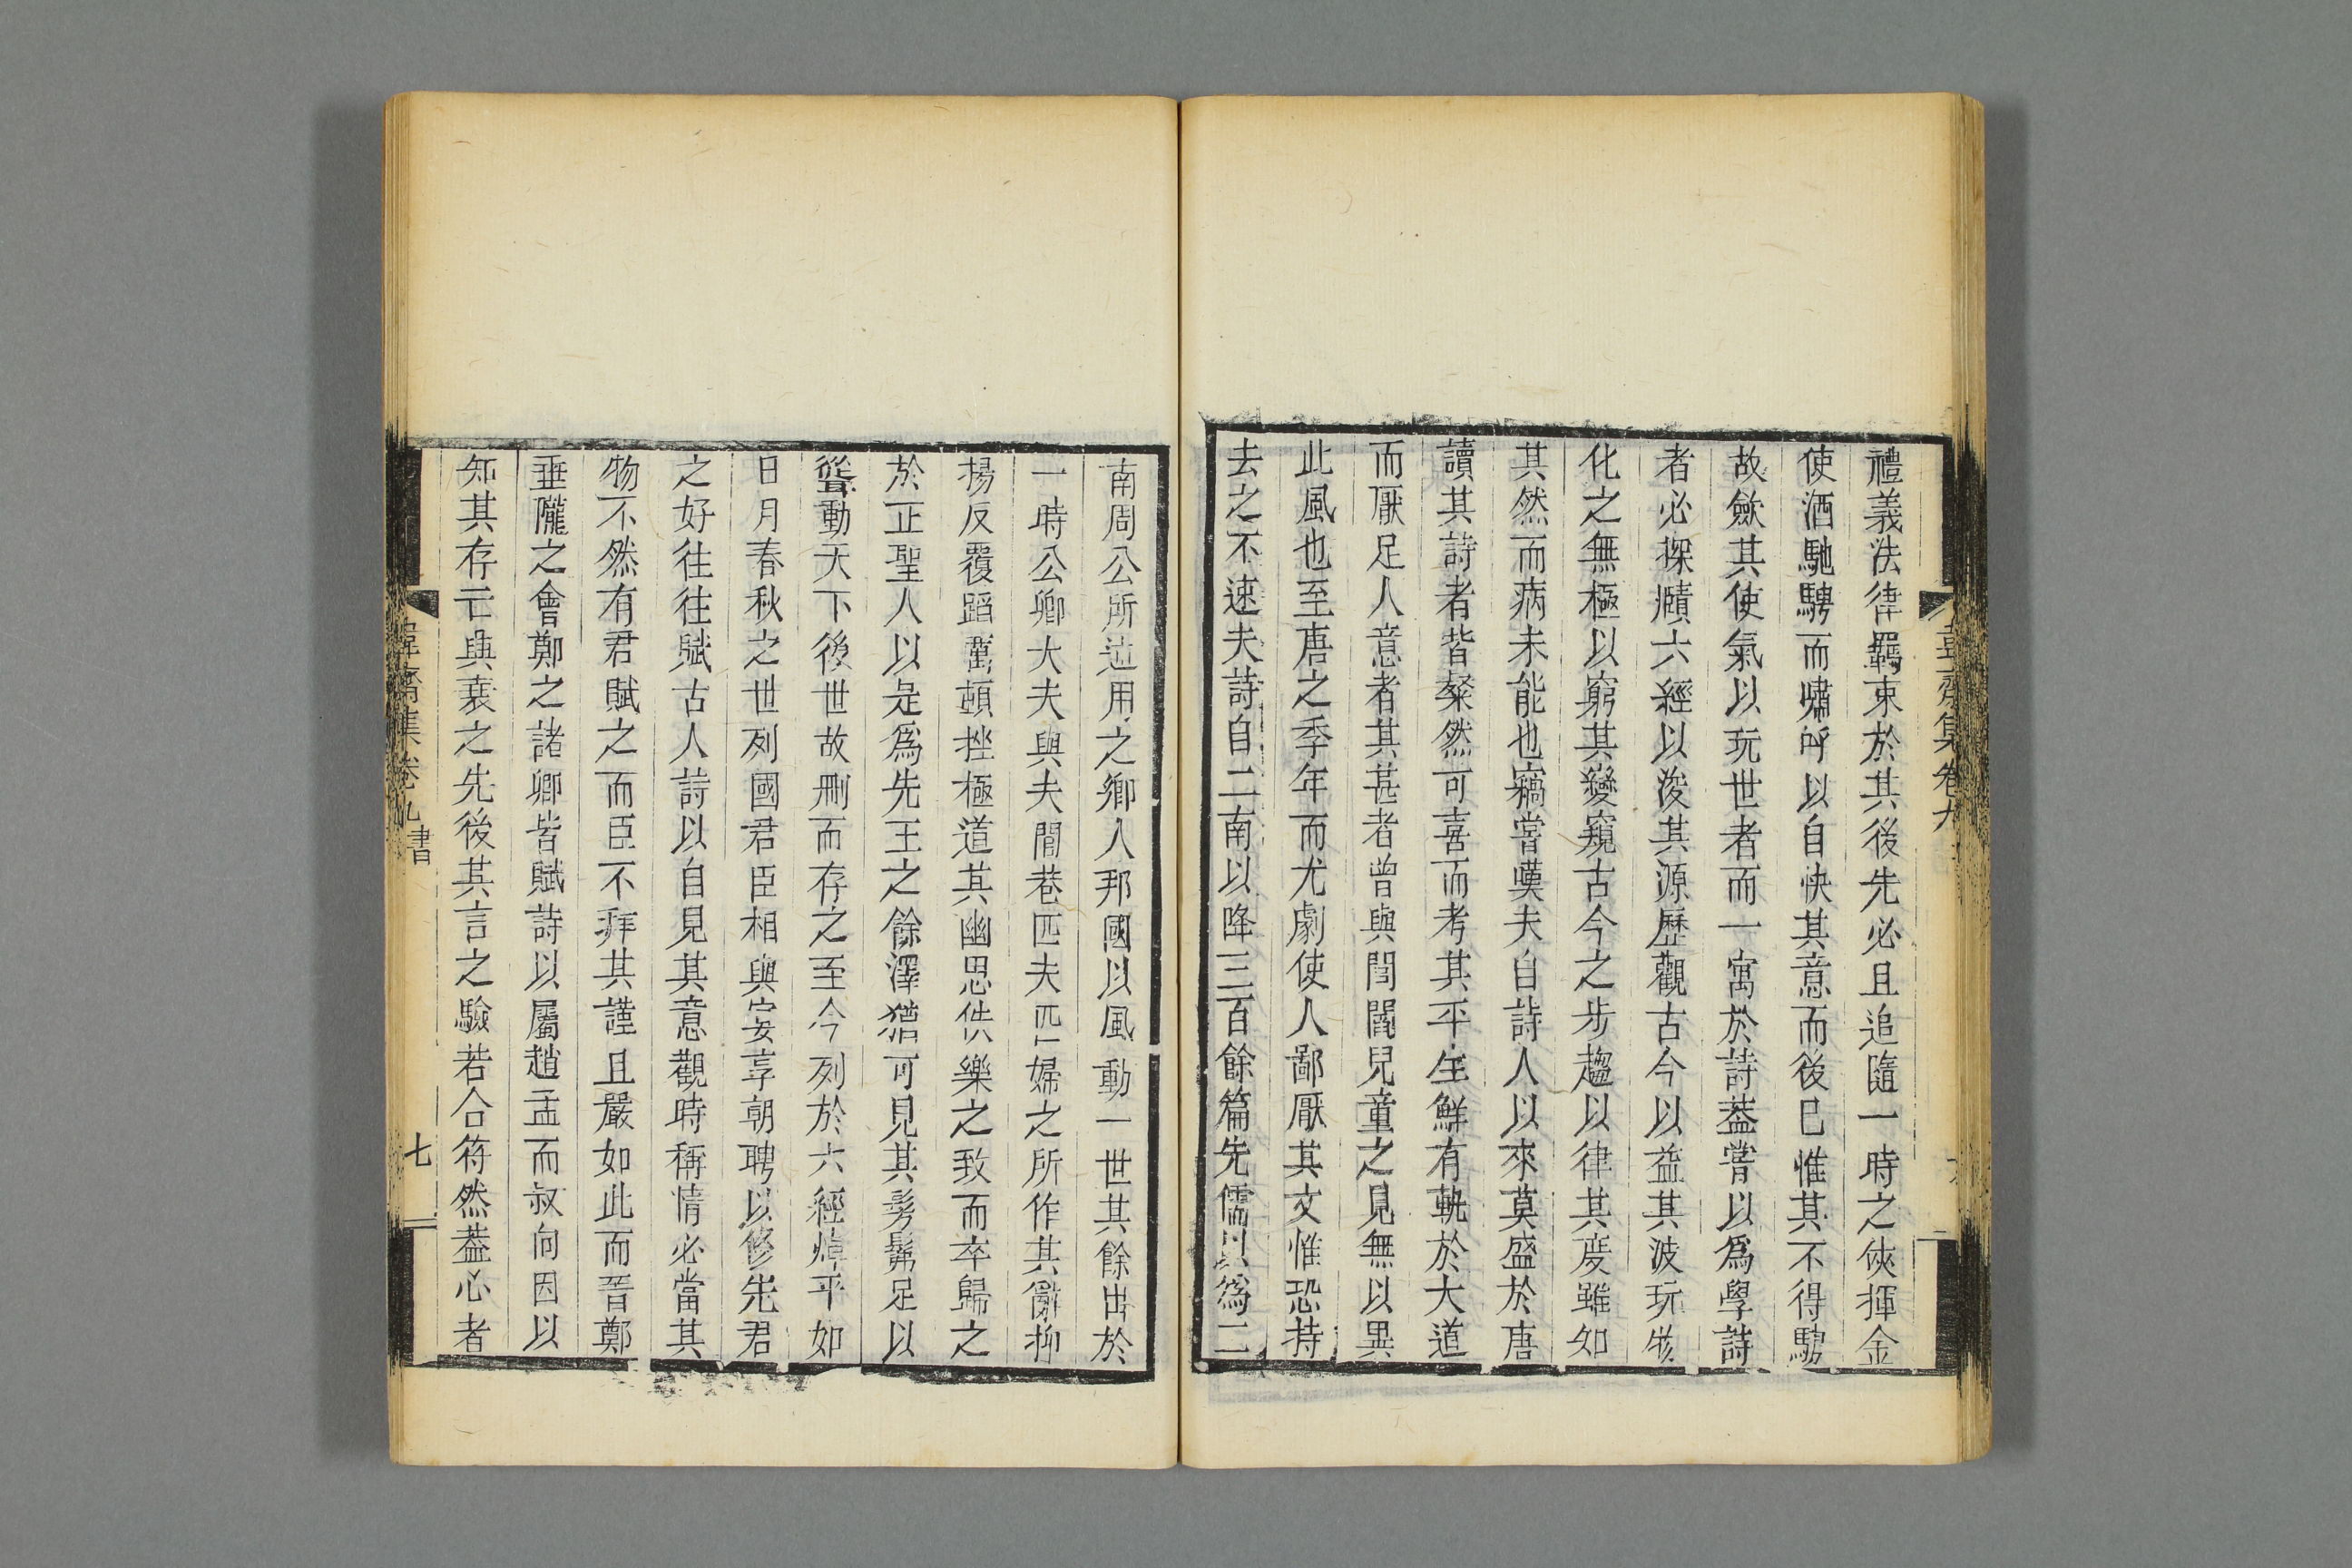 禮義法律羈束於其後先必且追隨一時之俠揮金
使酒馳騁而嘯呼以自快其意而後已惟其不得騁
故歛其使氣以玩世者而一寓於詩葢嘗以爲學詩
者必探賾六經以浚其源歷觀古今以益其波玩物
化之無極以窮其變窺古今之步趨以律其度雖如
其然而病未能也竊嘗嘆夫自詩人以來莫盛於唐
讀其詩者皆粲然可喜而考其平生鮮有軌於大道
而厭足人意者其甚者曾與閭閻兒童之見無以異
此風也至唐之季年而尤劇使人鄙厭其文惟恐持
去之不速夫詩自二南以降三百餘篇先儒以爲二
南周公所述用之鄉人邦國以風動一世其餘出於
一時公卿大夫與夫閭巷匹夫匹婦之所作其辭抑
揚反覆蹈厲頓挫極道其幽思佚樂之致而卒歸之
於正聖人以是爲先王之餘澤猶可見其髣髴足以
聳動天下後世故刪而存之至今列於六經焯乎如
日月春秋之世列國君臣相與宴享朝聘以修先君
之好往往賦古人詩以自見其意觀時稱情必當其
物不然有君賦之而臣不拜其謹且嚴如此而晉鄭
垂隴之會鄭之諸卿皆賦詩以屬趙孟而叔向因以
知其存亡與衰之先後其言之驗若合符然葢心者
韋齋集卷九 書
七